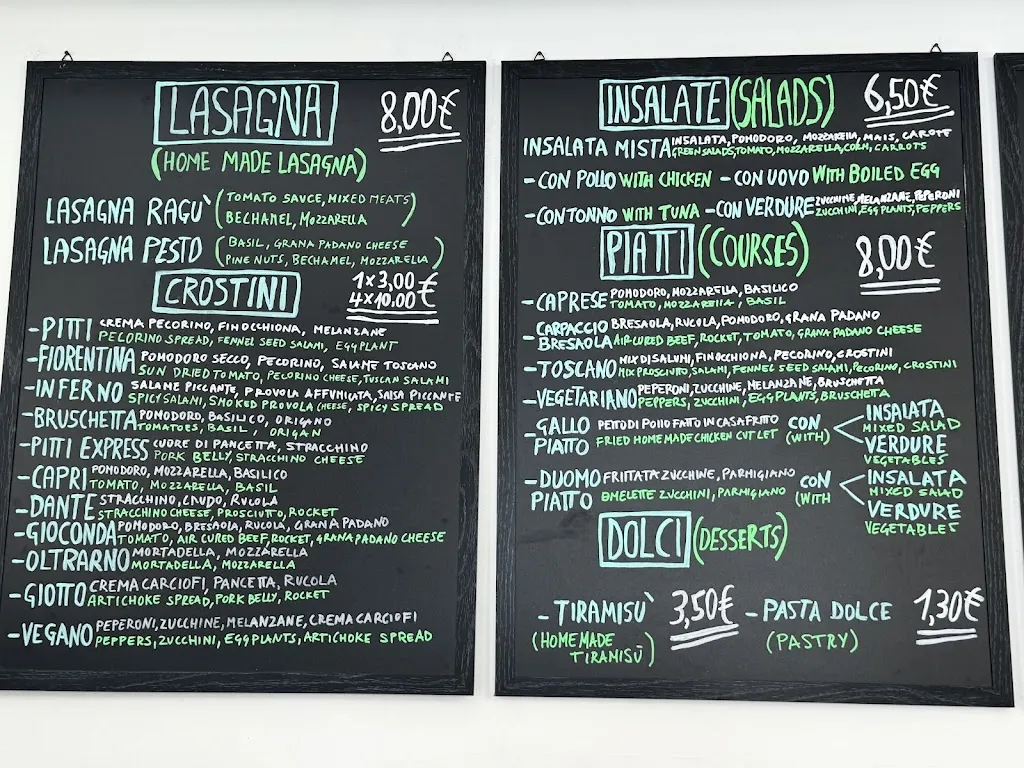 LASAGNA 8,00€
(HOME MADE LASAGNA)
LASAGNA RAGU' (TOMATO SAUCE, MIXED MEATS
BECHAMEL, MOZZARELLA)
LASAGNA PESTO (BASIL, GRANA PADANO CHEESE
PINE NUTS, BECHAMEL, MOZZARELLA)
CROSTINI 1x3,00€
4x10.00
-PITTI CREMA PECORINO, FINOCCHIONA, MELANZANE
PELORINO SPREAD, FENNEL SEED SALAMI, EGGPLANT
-FIORENTINA POMODORO SECCO, PECORINO, SALAME TOSCANO
SUN DRIED TOMATO, PECORINO CHEESE, TUSCAN SALAMI
-INFERNO SALAME PICCANTE, PROVOLA AFFUMICATA, SALSA PICCANTE
SPICY SALAMI, SMOKED PROVOLA CHEESE, SPICY SPREAD
-BRUSCHETTA POMODORO, BASILICO, ORIGANO
TOMATOES, BASIL, ORIGAN
-PITTI EXPRESS CUORE DI PANCETTA, STRACCHINO
PORK BELLY, STRACCHINO CHEESE
-CAPRI POMODORO, MOZZARELLA, BASILICO
TOMATO, MOZZARELLA, BASIL
-DANTE STRACCHINO, CRUDO, RUCOLA
STRACCHINO CHEESE, PROSCIUTO, ROCKET
-GIOCONDA POMODORO, BRESAOLA, RUCOLA, GRANA PADANO
TOMATO, AIR CURED BEEF, ROCKET, GRANA PADANO CHEESE
-OLTRARNO MORTADELLA, MOZZARELLA
MORTADELLA, MOZZARELLA
-GIOTTO CREMA CARCIOFI, PANCETTA, RUCOLA
ARTICHOKE SPREAD, PORK BELLY, ROCKET
-VEGANO PEPERONI, ZUCCHINE, MELANZANE, CREMA CARCIOFI
PEPPERS, ZUCCHINI, EGGPLANTS, ARTICHOKE SPREAD
INSALATE (SALADS) 6,50€
INSALATA MISTA INSALATA, POMODORO, MOZZARELLA, MAIS, CAROTE
GREEN SALADS, TOMATO, MOZZARELLA, CORN, CARROTS
-CON POLLO WITH CHICKEN -CON UOVO WITH BOILED EGG
-CON TONNO WITH TUNA -CON VERDURE ZUCCHINE, MELANZANE, PEPERONI
ZUCCINI, EGG PLANTS, PEPPERS
PIATTI (COURSES) 8,00€
-CAPRESE POMODORO, MOZZARELLA, BASILICO
TOMATO, MOZZARELLA, BASIL
-CARPACCIO BRESAOLA BRESAOLA, RUCOLA, POMODORO, GRANA PADANO
AIR CURED BEEF, ROCKET, TOMATO, GRANA PADANO CHEESE
-TOSCANO MIX DI SALUMI, FINOCCHIONA, PECORINO, CROSTINI
MIX PROSCIUTO, SALAMI, FENNEL SEED SALAMI, PECORINO, CROSTINI
-VEGETARIANO PEPERONI, ZUCCHINE, MELANZANE, BRUSCHETTA
PEPPERS, ZUCCINI, EGGPLANTS, BRUSCHETTA
-GALLO PIATTO PETTO DI POLLO FATTO IN CASA FRITTO CON INSALATA
FRIED HOMEMADE CHICKEN CUTLET (WITH) MIXED SALAD
VERDURE
VEGETABLES
-DUOMO PIATTO FRITTATA ZUCCHINE, PARMIGIANO CON INSALATA
OMELETTE ZUCCHINI, PARMIGIANO (WITH MIXED SALAD
VERDURE
VEGETABLES
DOLCI (DESSERTS)
-TIRAMISU' 3,50€ -PASTA DOLCE 1,30€
(HOMEMADE TIRAMISÙ) (PASTRY)